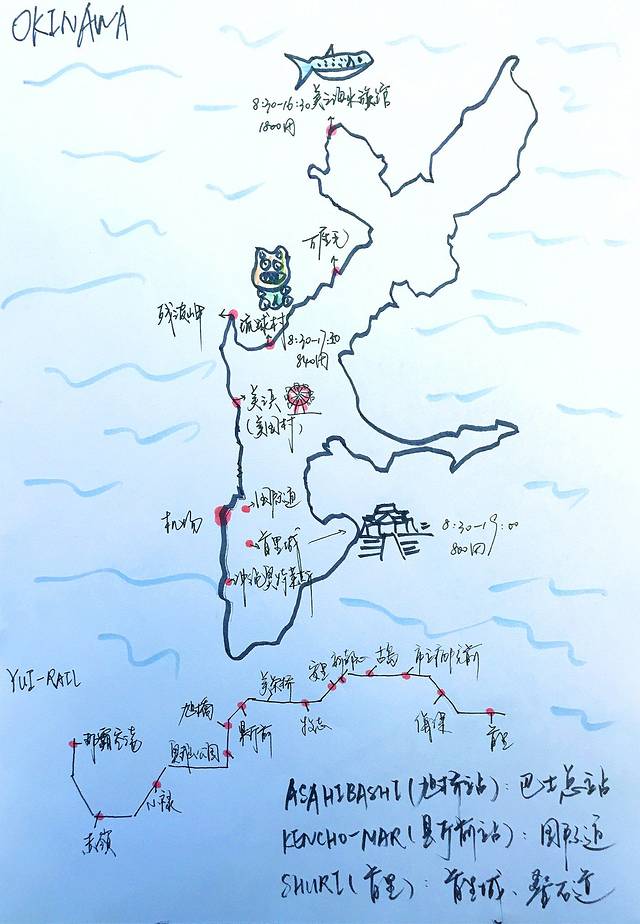 OKINAWA
8:30-16:30 美之海水族馆
1800円
万座毛
残波岬
琉球村
8:30-17:30
840円
美浜
(美国村)
机场
国际通
首里城
8:30-19:00
800円
冲绳奥特莱斯
YUI-RAIL
那霸空港
赤嶺
小禄
奥武山公園
旭橋
县厅前
美荣桥
牧志
安里
古岛
市立病院前
儀保
首里
ASAHIBASHI(旭桥站):巴士总站
KENCHO-MAE(县厅前站):国际通
SHURI(首里):首里城、叠石道